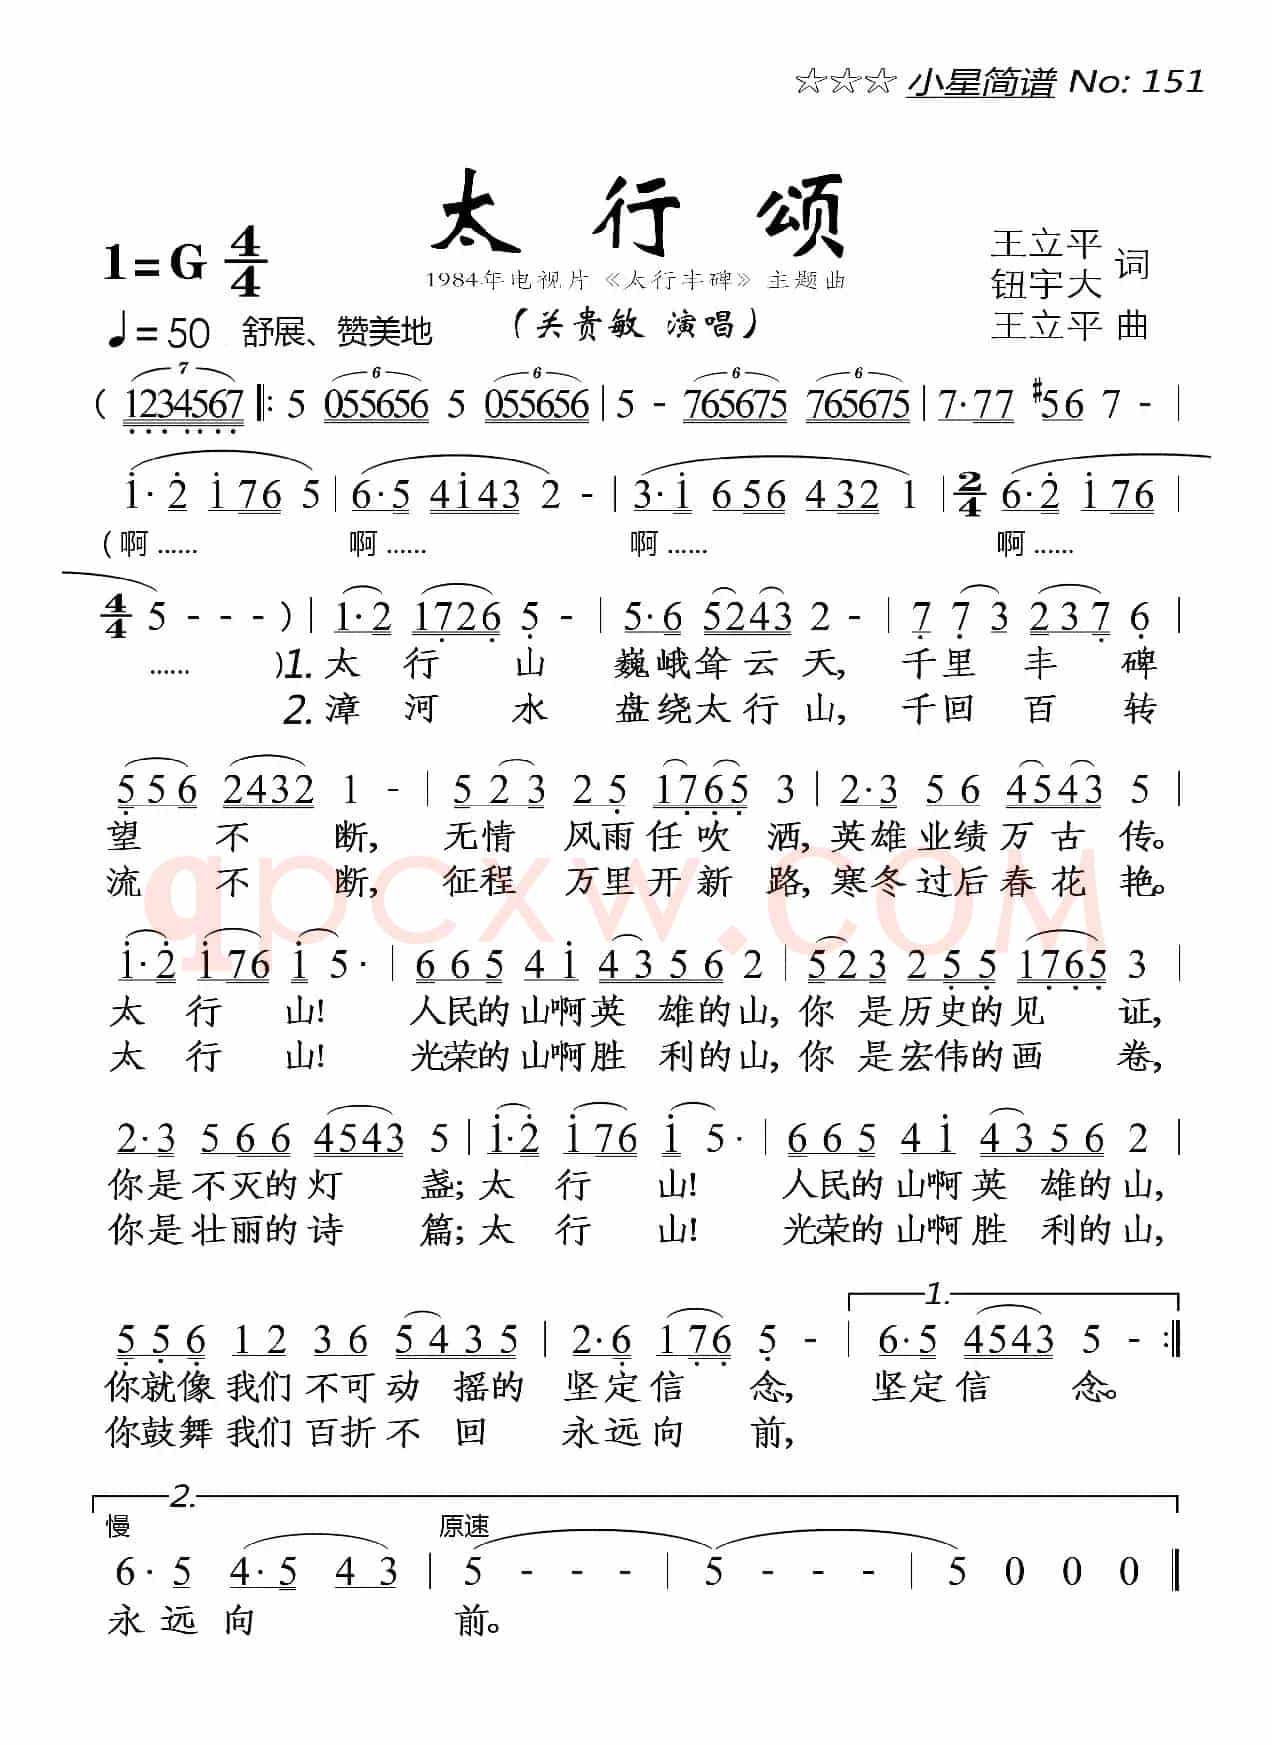 ☆☆☆ 小星简谱 No: 151
太 行 颂
1984年电视片《太行丰碑》主题曲
(关贵敏 演唱)
王立平
钮宇大 词
王立平 曲
1=G 4/4
♩=50 舒展、赞美地
( 1234567 ‖: 5 055656 5 055656 | 5 - 765675 765675 | 7·77 #56 7 - |
1·2 176 5 | 6·5 4143 2 - | 3·1 656 432 1 | 2/4 6·2 176 |
(啊…… 啊…… 啊…… 啊……
4/4 5 - - - ) | 1·2 1726 5 - | 5·6 5243 2 - | 7 7 3 237 6 |
…… )1. 太 行 山 巍峨耸云天, 千里丰碑
2. 漳 河 水 盘绕太行山, 千回百转
5 5 6 2432 1 - | 5 2 3 2 5 1765 3 | 2·3 5 6 4543 5 |
望 不 断, 无情 风雨任吹 洒, 英雄业绩万古 传。
流 不 断, 征程 万里开新 路, 寒冬过后春花 艳。
1·2 176 1 5· | 6 6 5 4 1 4 3 5 6 2 | 5 2 3 2 5 5 1765 3 |
太 行 山! 人民的山啊英 雄的山, 你 是历史的见 证,
太 行 山! 光荣的山啊胜 利的山, 你 是宏伟的画 卷,
2·3 5 6 6 4543 5 | 1·2 176 1 5· | 6 6 5 4 1 4 3 5 6 2 |
你是不灭的灯 盏; 太 行 山! 人民的山啊英 雄的山,
你是壮丽的诗 篇; 太 行 山! 光荣的山啊胜 利的山,
1.
5 5 6 1 2 3 6 5 4 3 5 | 2·6 176 5 - | 6·5 4543 5 - :‖
你就像我们不可动 摇的 坚定信 念, 坚定信 念。
你鼓舞我们百折不 回 永远向 前,
2.
慢 原速
6·5 4·5 4 3 | 5 - - - | 5 - - - | 5 0 0 0 ‖
永 远 向 前。
qpcxw.COM